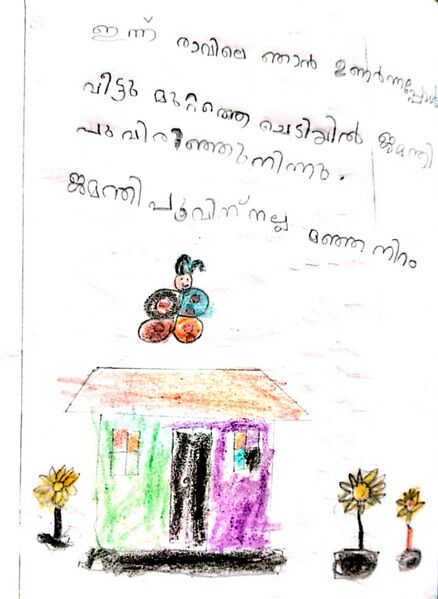 ഇന്ന് രാവിലെ ഞാൻ ഉണർന്നപ്പോൾ
വീട്ടു മുറ്റത്തെ ചെടിയിൽ ജമന്തി
പൂവിരിഞ്ഞുനിന്നു.
ജമന്തി പൂവിന് നല്ല മഞ്ഞ നിറം